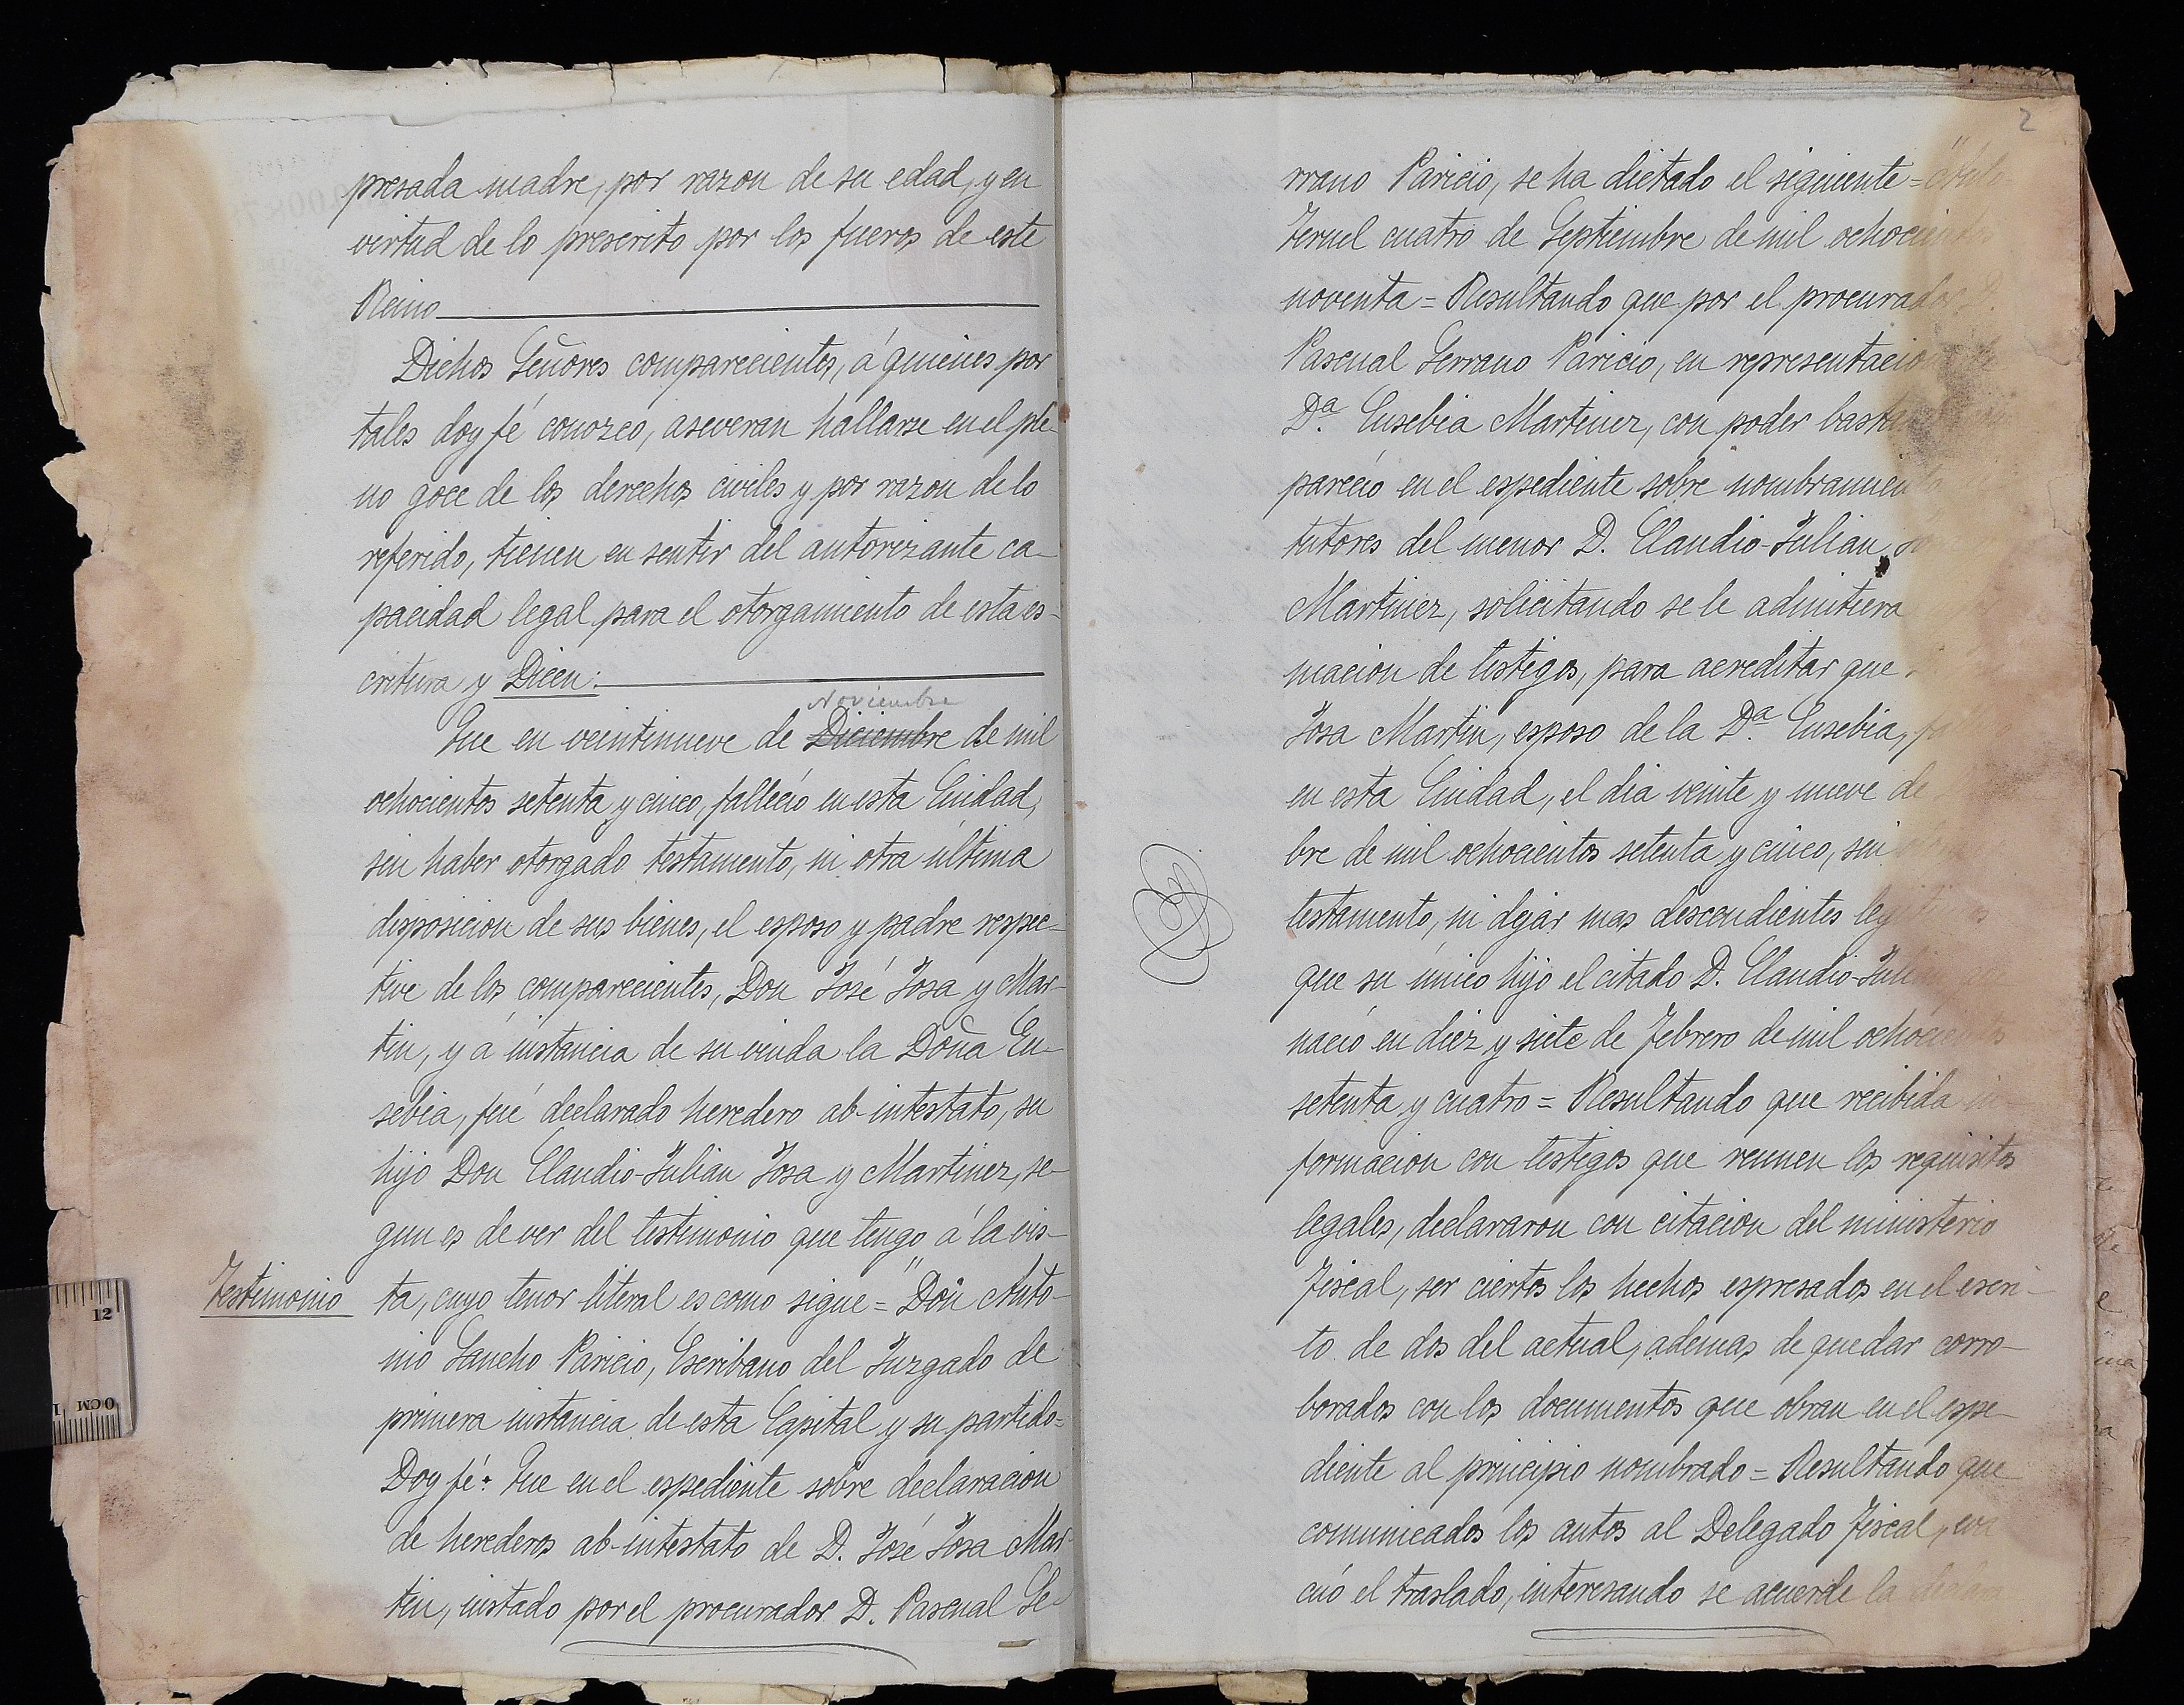 presada madre, por razon de su edad, y en
virtud de lo prescrito por los fueros de este
Reino
Dichos Señores comparecientes, á quienes por
tales doy fé conozco, aseveran hallarse en el ple-
no goce de los derechos civiles y por razon de lo
referido, tienen en sentir del autorizante ca-
pacidad legal para el otorgamiento de esta es-
critura y Dicen:
Noviembre
Que en veintinueve de Diciembre de mil
ochocientos setenta y cinco, falleció en esta Ciudad,
sin haber otorgado testamento, ni otra última
disposicion de sus bienes, el esposo y padre respec-
tive de los comparecientes, Don José Josa y Mar-
tin, y á instancia de su viuda la Doña Eu-
sebia, fué declarado heredero ab-intestato, su
hijo Don Claudio-Julian Josa y Martinez, se-
gun es de ver del testimonio que tengo á la vis-
Testimonio
ta, cuyo tenor literal es como sigue = "Don Anto-
nio Sancho Paricio, Escribano del Juzgado de
primera instancia de esta Capital y su partido=
Doy fé: Que en el espediente sobre declaracion
de herederos ab-intestato de D. José Josa Mar-
tin, instado por el procurador D. Pascual Se-
2
rrano Paricio, se ha dictado el siguiente = "Auto
Teruel cuatro de Septiembre de mil ochocientos
noventa = Resultando que por el procurador
Pascual Serrano Paricio, en representacion de
Dª Eusebia Martinez, con poder
pareció en el espediente sobre nombramiento
tutores del menor D. Claudio-Julian
Martinez, solicitando se le admitiera
macion de testigos, para acreditar que
Josa Martin, esposo de la Dª Eusebia,
en esta Ciudad, el dia veinte y nueve de
bre de mil ochocientos setenta y cinco, sin
testamento, ni dejar mas descendientes legitimos
que su único hijo el citado D. Claudio-Julian
nació en diez y siete de Febrero de mil ochocientos
setenta y cuatro = Resultando que recibida in
formacion con testigos que reunen los requisitos
legales, declararon con citacion del ministerio
Fiscal, ser ciertos los hechos espresados en el escri-
to de dos del actual, ademas de quedar corro-
borados con los documentos que obran en el espe-
diente al principio nombrado = Resultando que
comunicados los autos al Delegado Fiscal, eva
cuó el traslado, interesando se acuerde la